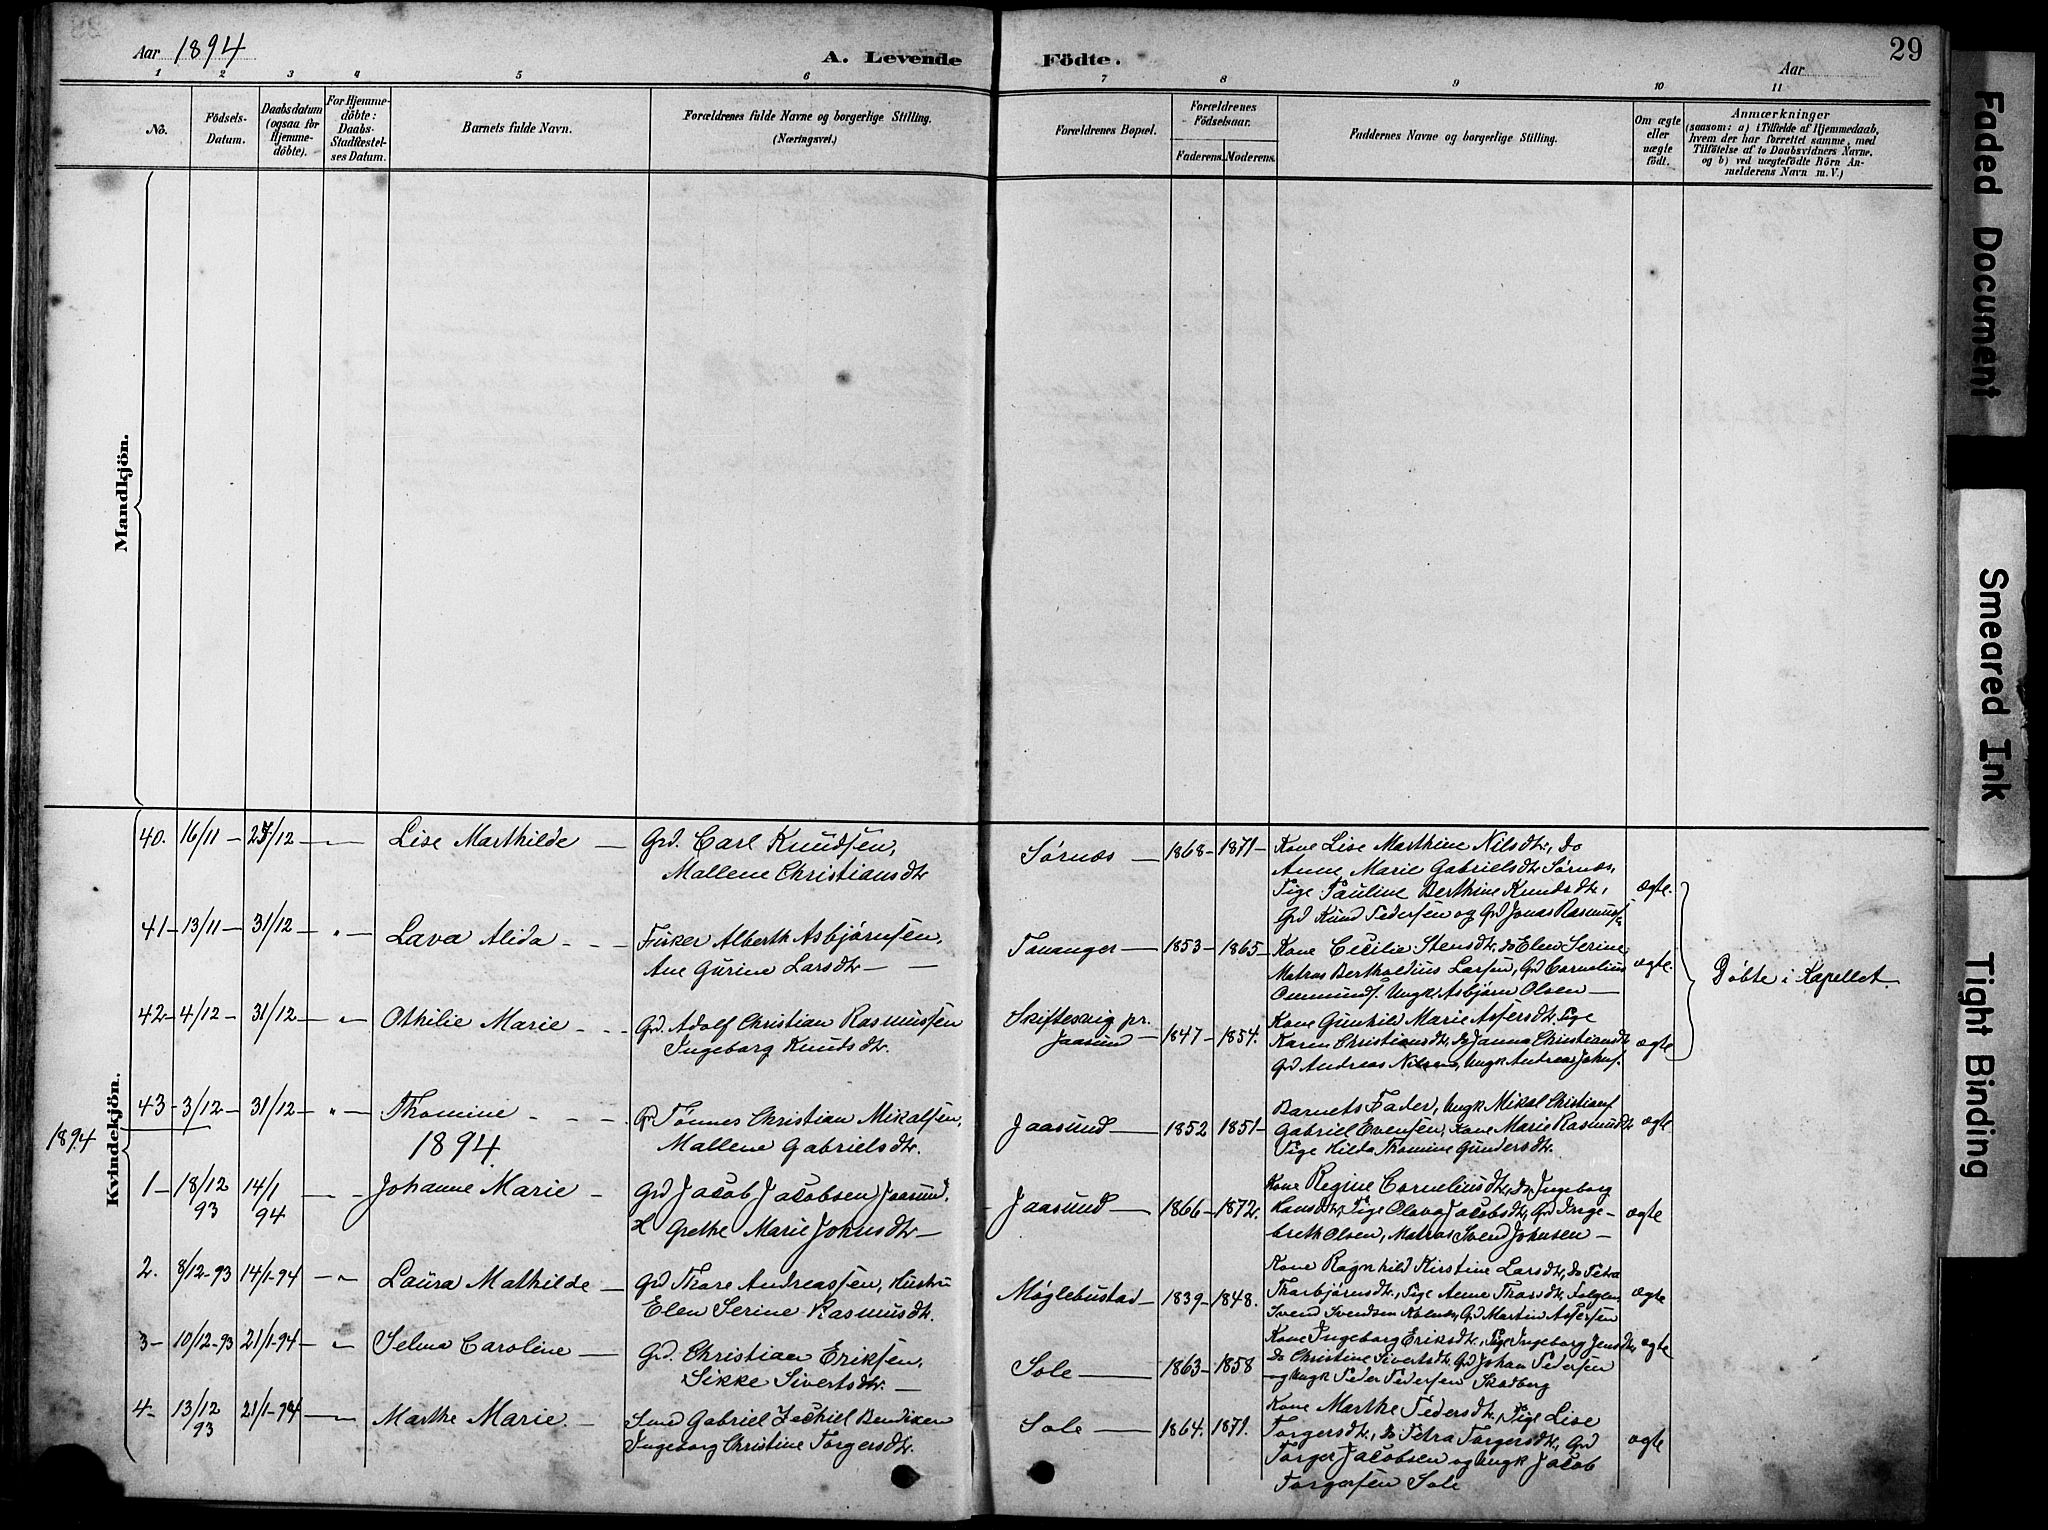 Aar 1894
A. Levende Födte.
Aar
29
1 2 3 4 5 6 7 8 9 10 11
No.
Födsels-
Datum.
Daabsdatum
(ogsaa for
Hjemme-
döbte).
For Hjemme-
döbte:
Daabs-
Stadfæstel-
ses Datum.
Barnets fulde Navn.
Forældrenes fulde Navne og borgerlige Stilling.
(Næringsvei.)
Forældrenes Bopæl.
Forældrenes
Födselsaar.
Faderens. Moderens.
Faddernes Navne og borgerlige Stilling.
Om ægte
eller
uægte
födt.
Anmærkninger
(saasom: a) i Tilfælde af Hjemmedaab,
hvem der har forrettet samme, med
Tilföielse af to Daabsvidners Navne.
og b) ved uægtefödte Börn An-
melderens Navn m. V.)
Mandkjön.
Kvindekjön.
40. 16/11 – 27/12 – " – Lise Marthilde – Grd. Carl Knudsen,
Mallene Christiansdtr
Sørnæs – 1868 – 1871 – Kone Lise Marthine Nilsdtr, do
Anne Marie Gabrielsdtr Sørnæs,
Pige Pauline Berthine Knudsdtr,
Grd Knud Pedersen og Grd Jonas Rasmusf.
ægte.
41 – 13/11 – 31/12 " – Lava Alida – – – Fisker Alberth Asbjørnsen,
Ane Gurine Larsdtr – –
Tananger – 1853 – 1865 – Kone Cecilie Stensdtr, do Elen Serine
Matros Bertholdius Larsen, Grd Cornelius
Ommundf. Ungk Asbjørn Olsen –
ægte.
Døbte i Kapellet.
42 – 4/12 – 31/12 – " Othilie Marie – – – Grd. Adolf Christian Rasmussen
Ingeborg Knudsdtr.
Skiftesvig pr.
Jaasund – 1847 – 1854. Kone Gunhild Marie Assersdtr. Pige
Karen Christiansdtr, do Janna Christiansdtr
Grd Andreas Nilsens, Ungk Andreas Johnf.
ægte
43 – 3/12 – 31/12 – " – Thomine – – – Grd Tønnes Christian Mikalsen,
Mallene Gabrielsdtr.
Jaasund – 1852 1851 – Barnets Fader, Ungk Mikal Christianf
Gabriel Evensen, Kone Marie Rasmusdtr
Pige Hilda Thomine Gundersdtr.
ægte
1894
1894.
1 – 18/12 93 14/1 94 – – Johanne Marie – Grd Jacob Jacobsen Jaasund.
Grethe Marie Johnsdtr –
Jaasund – 1866 – 1872. Kone Regine Corneliusdtr, do Ingeborg
Hansdtr, Pige Olava Jacobsdtr, Grd Inge-
breth Olsen, Matros Svend Johnsen –
ægte
2. 8/12-93 14/1-94 – " – Laura Mathilde – Grd Thore Andreassen, Hustru
Elen Serine Rasmusdtr.
Møglebustad – 1839 – 1848. Kone Ragnhild Kirstine Larsdtr, do Petra
Thorbjørnsdtr, Pige Anne Thorsdtr
Svend Svendsen Grd Martin Assersen
ægte
3 – 10/12-93 21/1-94 – " Selma Caroline – Grd. Christian Eriksen,
Sikke Sivertsdtr. –
Sole – 1863 – 1858 Kone Ingeborg Eriksdtr, Pige Ingeborg Jensdtr,
do Christine Sivertsdtr, Grd Johan Pedersen
og Ungk Peder Pedersen Skadberg
ægte
4 – 13/12 93 21/1-94 – " – Marthe Marie. – Smed Gabriel Zechill Bendiksen
Ingeborg Christine Torgersdtr.
Sole – 1864. 1871. Kone Marthe Pedersdtr, Pige Lise
Torgersdtr, do Petra Torgersdtr, Grd
Torger Jacobsen og Ungk Jacob
Torgersen Sole
ægte
Faded Document
Smeared Ink
Tight Binding